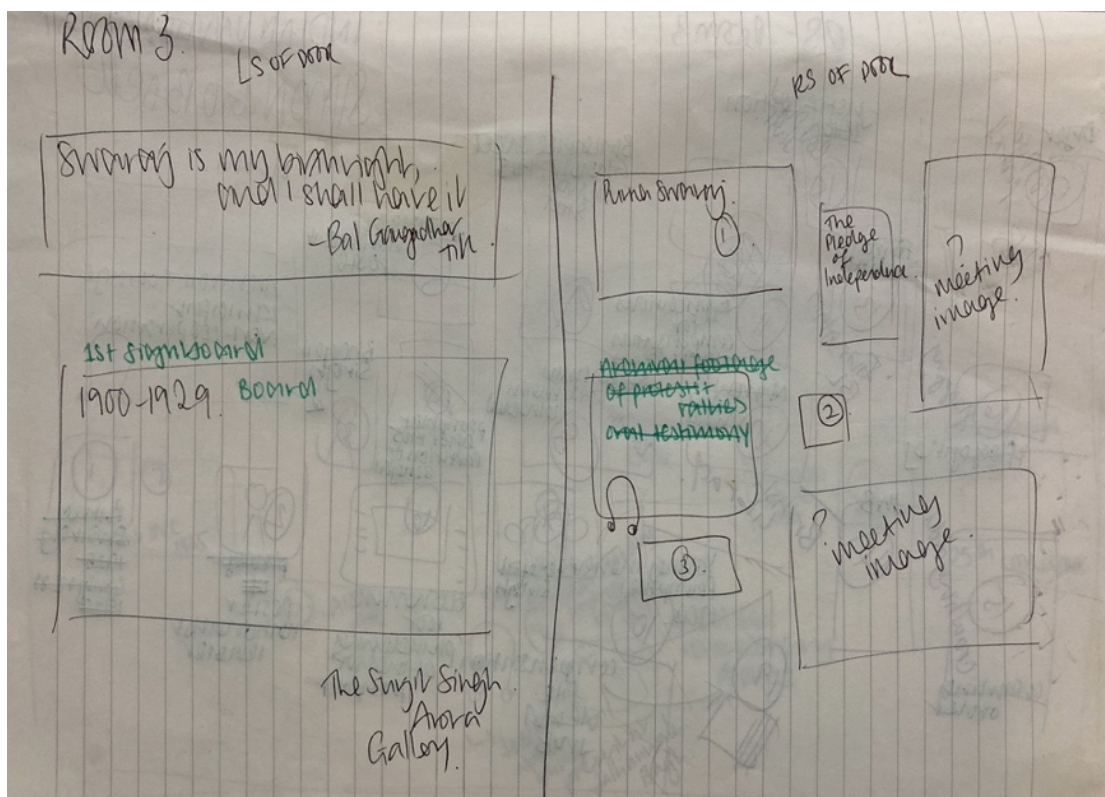 Room 3.
LS OF DOOR
Swaraj is my birthright,
and I shall have it
-Bal Gangadhar
1st signboard
1900-1929. Board
The Surjit Singh
Arora
Gallery.
RS OF DOOR
Purna Swaraj.
1
The
Pledge
of
Independence
?
meeting
image.
Archival footage
of protest +
rallies
oral testimony
2
3.
?
meeting
image.